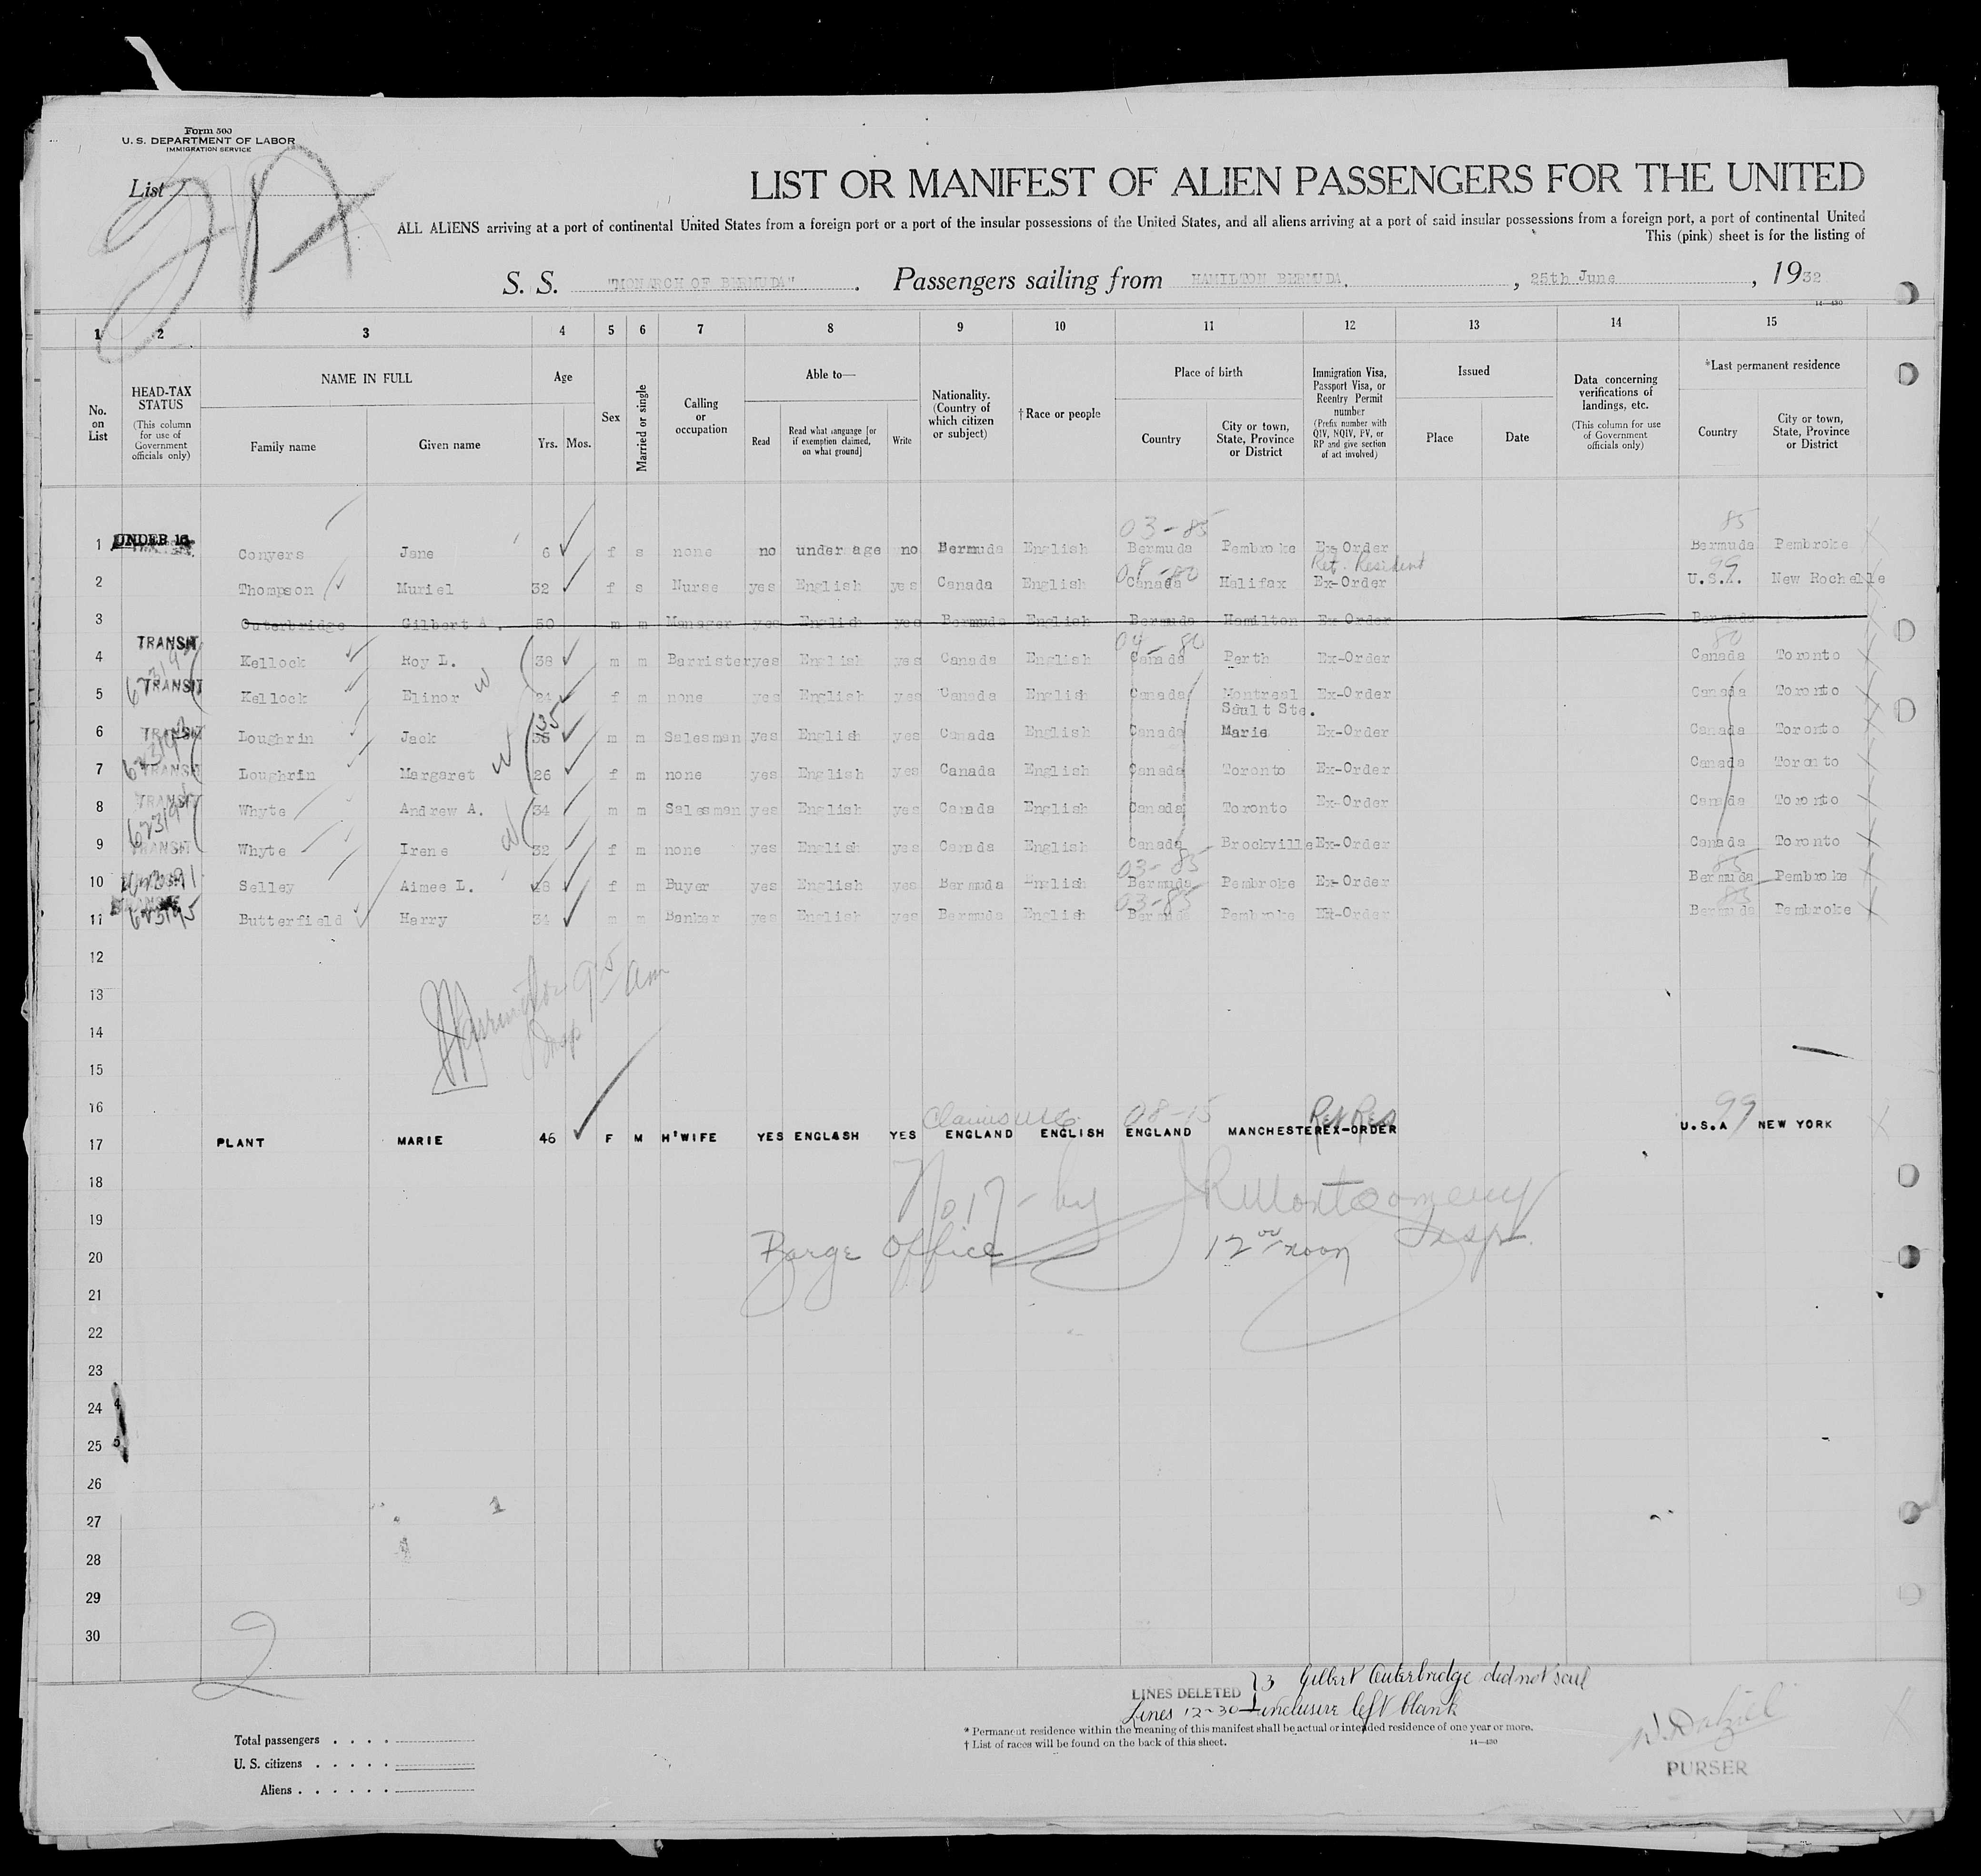 Form 500
U. S. DEPARTMENT OF LABOR
IMMIGRATION SERVICE
List
LIST OR MANIFEST OF ALIEN PASSENGERS FOR THE UNITED
ALL ALIENS arriving at a port of continental United States from a foreign port or a port of the insular possessions of the United States, and all aliens arriving at a port of said insular possessions from a foreign port, a port of continental United
This (pink) sheet is for the listing of
S. S. "MONARCH OF BERMUDA" . Passengers sailing from HAMILTON BERMUDA. , 25th June , 1932
14—430
1 2 3 4 5 6 7 8 9 10 11 12 13 14 15
No. on List
HEAD-TAX STATUS (This column for use of Government officials only)
NAME IN FULL Family name Given name
Age Yrs. Mos.
Sex
Married or single
Calling or occupation
Able to— Read Read what language [or if exemption claimed, on what ground] Write
Nationality. (Country of which citizen or subject)
†Race or people
Place of birth Country City or town, State, Province or District
Immigration Visa, Passport Visa, or Reentry Permit number (Prefix number with QIV, NQIV, PV, or RP and give section of act involved)
Issued Place Date
Data concerning verifications of landings, etc. (This column for use of Government officials only)
*Last permanent residence Country City or town, State, Province or District
03-85 85
1 UNDER 16 Conyers Jane 6 f s none no under age no Bermuda English Bermuda Pembroke Ex-Order Bermuda Pembroke
08-80 Ret. Resident 99
2 Thompson Muriel 32 f s Nurse yes English yes Canada English Canada Halifax Ex-Order U.S.A. New Rochelle
3 Outerbridge Gilbert A. 50 m m Manager yes English yes Bermuda English Bermuda Hamilton Ex-Order Bermuda
04-80 80
4 TRANSIT Kellock Roy L. 38 m m Barrister yes English yes Canada English Canada Perth Ex-Order Canada Toronto
5 TRANSIT Kellock Elinor W f m none yes English yes Canada English Canada Montreal Ex-Order Canada Toronto
6 TRANSIT Loughrin Jack 35 m m Salesman yes English yes Canada English Canada Sault Ste. Marie Ex-Order Canada Toronto
7 TRANSIT Loughrin Margaret W 26 f m none yes English yes Canada English Canada Toronto Ex-Order Canada Toronto
8 TRANSIT Whyte Andrew A. 34 m m Salesman yes English yes Canada English Canada Toronto Ex-Order Canada Toronto
9 TRANSIT Whyte Irene W 32 f m none yes English yes Canada English Canada Brockville Ex-Order Canada Toronto
03-85 85
10 Selley Aimee L. f m Buyer yes English yes Bermuda English Bermuda Pembroke Ex-Order Bermuda Pembroke
03-85 85
11 623195 Butterfield Harry 34 m m Banker yes English yes Bermuda English Bermuda Pembroke Ex-Order Bermuda Pembroke
12
13
14
15
16
Claims USC 08-15 Ret Res 99
17 PLANT MARIE 46 F M H'WIFE YES ENGLASH YES ENGLAND ENGLISH ENGLAND MANCHESTER EX-ORDER U.S.A NEW YORK
18
No 17 - by J R Montgomery
19
Barge Office 12 00 noon Insp.
20
21
22
23
24 4
25 5
26
27
28
29
30
2
LINES DELETED } 3 Gilbert Outerbridge did not sail
Lines 12-30 inclusive left blank
* Permanent residence within the meaning of this manifest shall be actual or intended residence of one year or more.
† List of races will be found on the back of this sheet. 14—430
Total passengers
U. S. citizens
Aliens
PURSER